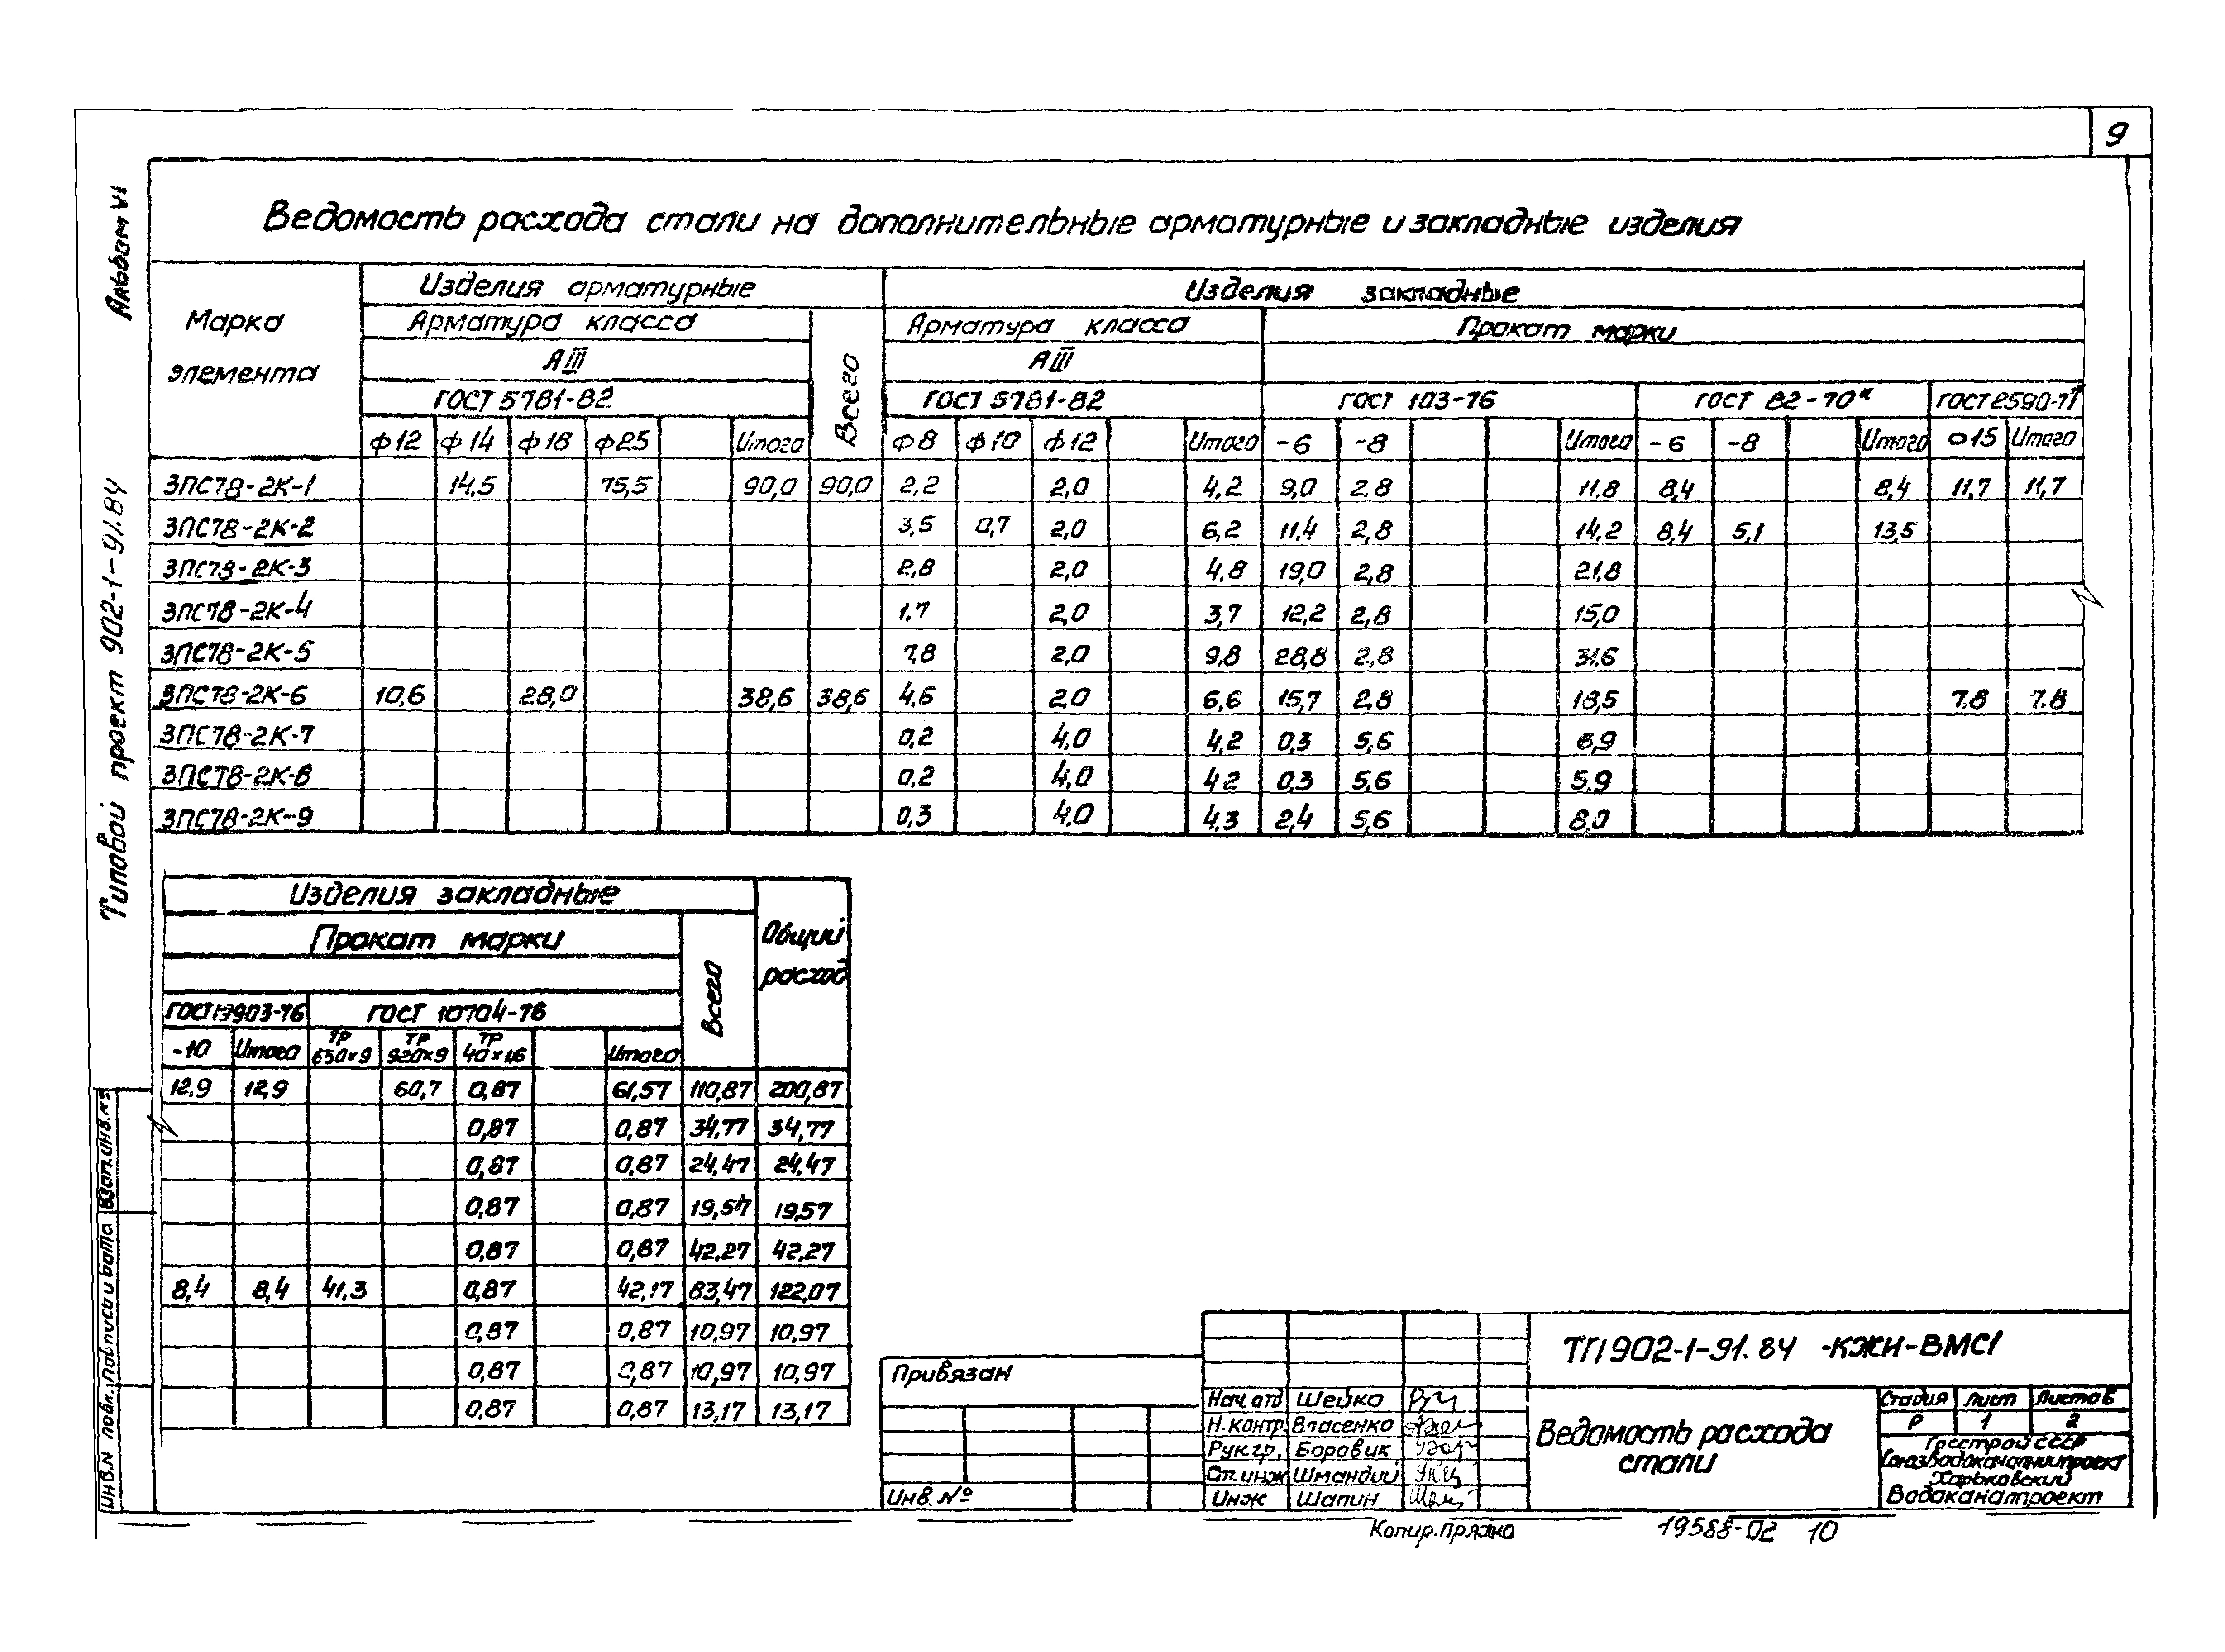 9
Альбом VI
Типовой проект 902-1-91.84
Ведомость расхода стали на дополнительные арматурные и закладные изделия
Марка элемента
Изделия арматурные
Изделия закладные
Арматура класса
Всего
Арматура класса
Прокат марки
АIII
АIII
ГОСТ 5781-82
ГОСТ 5781-82
ГОСТ 103-76
ГОСТ 82-70*
ГОСТ 2590-71*
ф12 ф14 ф18 ф25 Итого ф8 ф10 ф12 Итого -6 -8 Итого -6 -8 Итого О15 Итого
3ПС78-2К-1 14,5 75,5 90,0 90,0 2,2 2,0 4,2 9,0 2,8 11,8 8,4 8,4 11,7 11,7
3ПС78-2К-2 3,5 0,7 2,0 6,2 11,4 2,8 14,2 8,4 5,1 13,5
3ПС78-2К-3 2,8 2,0 4,8 19,0 2,8 21,8
3ПС78-2К-4 1,7 2,0 3,7 12,2 2,8 15,0
3ПС78-2К-5 7,8 2,0 9,8 28,8 2,8 31,6
3ПС78-2К-6 10,6 28,0 38,6 38,6 4,6 2,0 6,6 15,7 2,8 18,5 7.8 7.8
3ПС78-2К-7 0,2 4,0 4,2 0,3 5,6 5,9
3ПС78-2К-8 0,2 4,0 4,2 0,3 5,6 5,9
3ПС78-2К-9 0,3 4,0 4,3 2,4 5,6 8,0
Изделия закладные
Общий расход
Прокат марки
Всего
ГОСТ 19903-76
ГОСТ 10704-76
-10 Итого ТР 630×9 ТР 920×9 ТР 40×1,6 Итого
12,9 12,9 60,7 0,87 61,57 110,87 200,87
0,87 0,87 34,77 34,77
0,87 0,87 24,47 24,47
0,87 0,87 19,57 19,57
0,87 0,87 42,27 42,27
8,4 8,4 41,3 0,87 42,17 83,47 122,07
0,87 0,87 10,97 10,97
0,87 0,87 10,97 10,97
0,87 0,87 13,17 13,17
Взам.инв.№
Подпись и дата
Инв.№ подл.
Привязан
Инв.№
ТП 902-1-91.84 -КЖИ-ВМС1
Нач.отд Шейко
Н.контр. Власенко
Рук.гр. Боровик
Ст.инж Шмандий
Инж Шапин
Ведомость расхода стали
Стадия Лист Листов
Р 1 2
Госстрой СССР
Союзводоканалниипроект
Харьковский
Водоканалпроект
Копир. Пряжко
19588-02 10